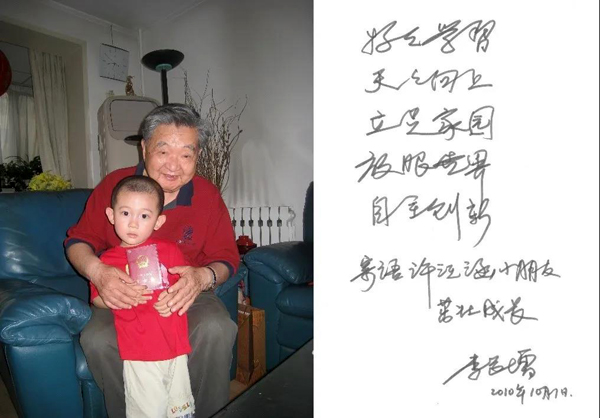 好好学习
天天向上
立足家园
放眼世界
自主创新
寄语许江涵小朋友
茁壮成长
2010年10月7日